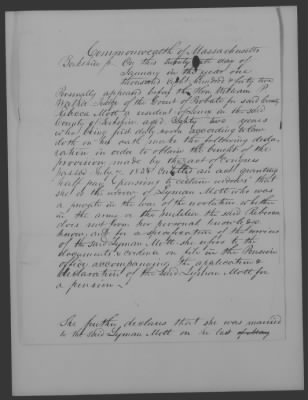 Commonwealth of Massachusetts
Berkshire ss. On this day of
January in the year one
thousand eight hundred & forty two
Personally appeared before the Hon. William P
Walker Judge of the Court of Probate for said County
Rebecca Mott a resident of in the said
County of Berkshire aged Eighty two years
who being first duly sworn according to law
doth on her oath make the following decla
ration in order to obtain the benefit of the
provision made by the act of Congress
passed July 7, 1838, Entitled an act granting
half pay & pensions to certain widows that
she is the widow of Lyman Mott who was
a private in the war of the revolution whether
in the army or the militia the said Rebecca
does not from her personal knowledge
know, and for a specification of the services
of the said Lyman Mott she refers to the
documents & evidence on file in the Pension
office accompanying the application &
declaration of the said Lyman Mott for
a pension
She further declares that she was married
to the said Lyman Mott on the last of May